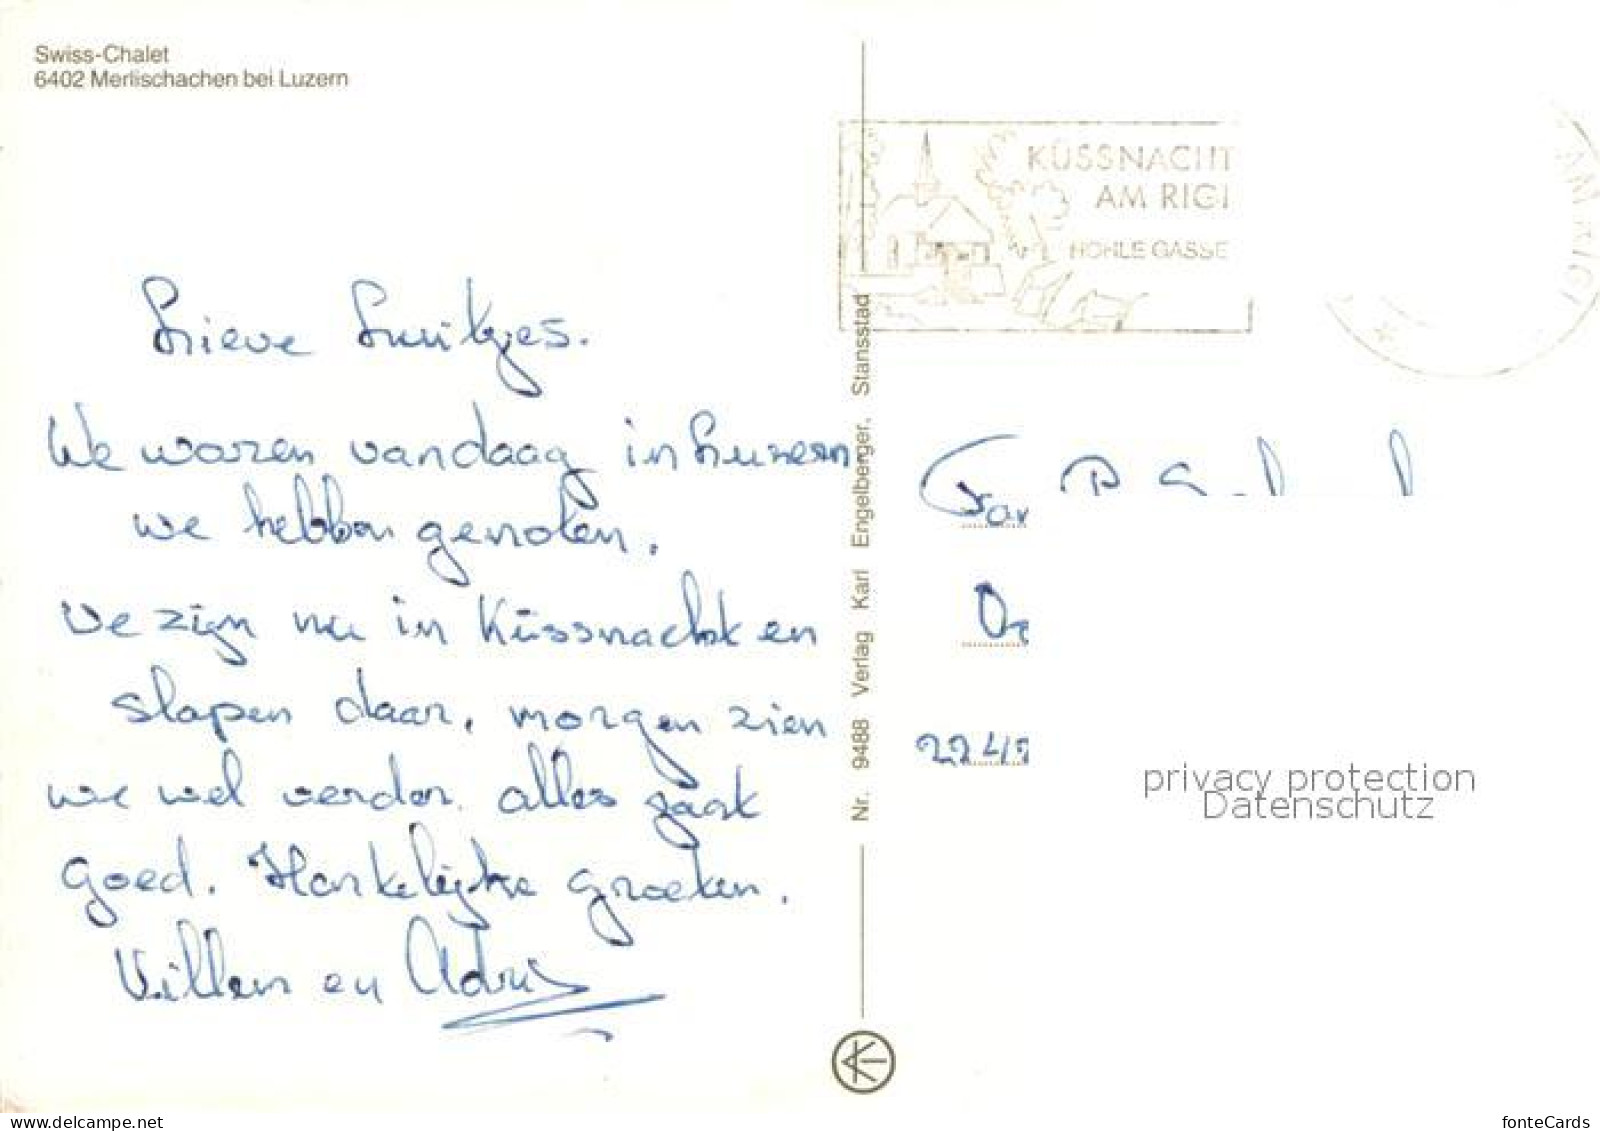 Swiss-Chalet
6402 Merlischachen bei Luzern
KÜSSNACHT
AM RIGI
HOHLE GASSE
AM RIGI
Lieve Luitjes.
We waren vandaag in Luzern
we hebben genoten.
We zijn nu in Küssnacht en
slapen daar, morgen zien
we wel verder. alles gaat
goed. Hartelijke groeten.
Willem en Adrie
Nr. 9488 Verlag Karl Engelberger, Stansstad
Fam
224
privacy protection
Datenschutz
delcampe.net
fonteCards